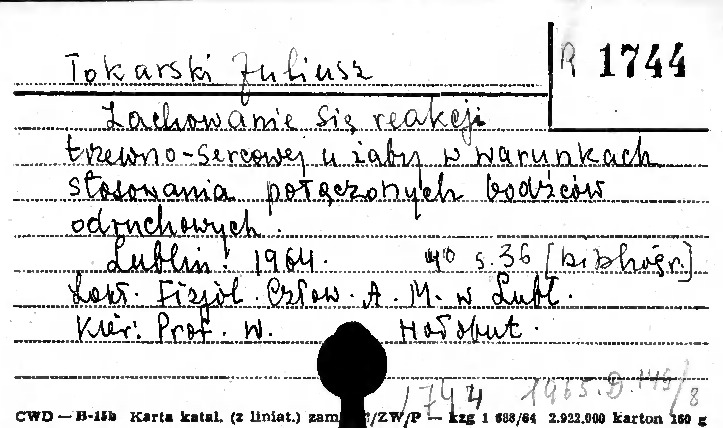 R 1744
Tokarski Juliusz
Zachowanie się reakcji
trzewno-sercowej u żaby w warunkach
stosowania połączonych bodźców
odruchowych.
Lublin! 1964. 4° s. 36 [bibliogr.]
Zakł. Fizjol. Człow. A. M. w Lubl.
Kier: Prof. W. Hołobut.
1744 1965.D.146/8
CWD — B-15b Karta katal. (z liniat.) zam /ZW/P — kzg 1 688/64 2.922.000 karton 160 g